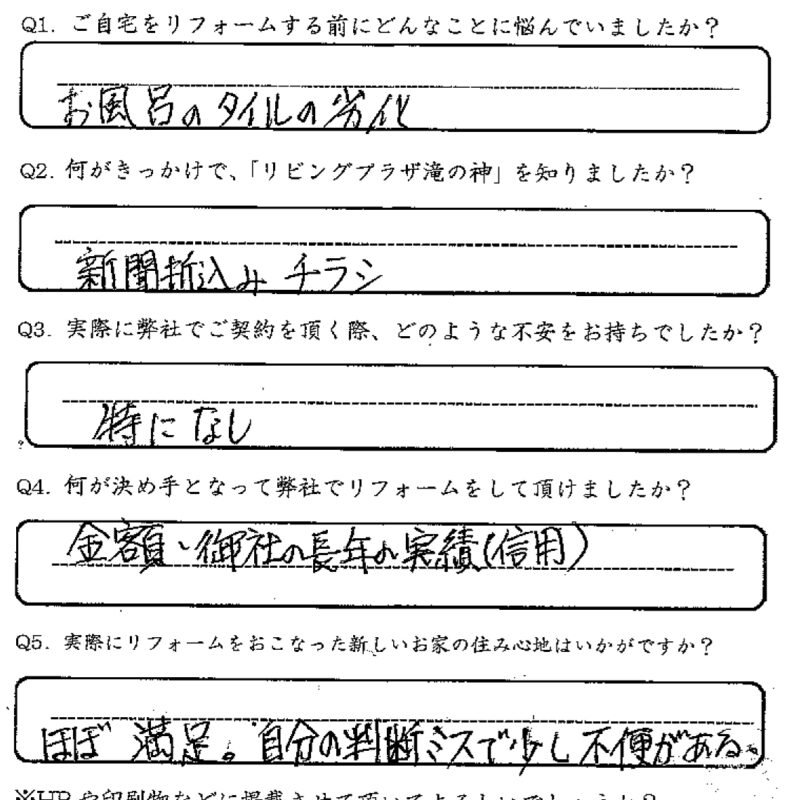 Q1. ご自宅をリフォームする前にどんなことに悩んでいましたか？
お風呂のタイルの劣化
Q2. 何がきっかけで、「リビングプラザ滝の神」を知りましたか？
新聞折込み チラシ
Q3. 実際に弊社でご契約を頂く際、どのような不安をお持ちでしたか？
特になし
Q4. 何が決め手となって弊社でリフォームをして頂けましたか？
金額、御社の長年の実績(信用)
Q5. 実際にリフォームをおこなった新しいお家の住み心地はいかがですか？
ほぼ 満足。自分の判断ミスで少し不便がある。
※HPや印刷物などに掲載させて頂いてよろしいでしょうか？